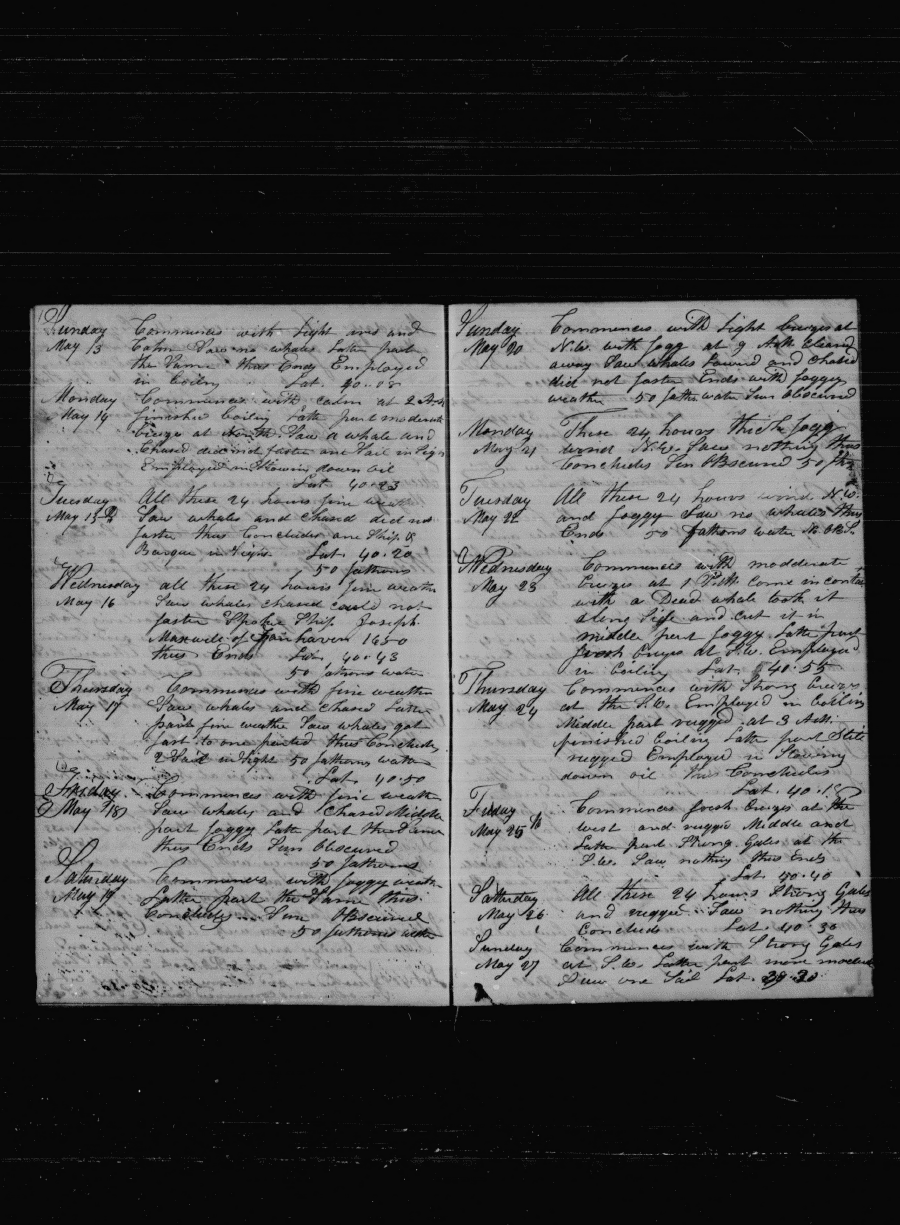 Sunday Commences with Light airs and
May 13 Calm Saw no whales Latter part
the Same thus Ends Employed
in Boiling Lat. 40.08
Monday Commences with calm at 2
May 14 finished Boiling Latter part moderate
Breeze at North Saw a whale and
Chased did not fasten one Sail in Sight
Employed in Stowing down oil
Lat 40-23
Tuesday All these 24 hours fine weather
May 15 Saw whales and chased did not
fasten thus Concludes one Ship &
Barque in Sight Lat. 40.20
50 fathoms
Wednesday all these 24 hours fine weather
May 16 Saw whales chased could not
fasten Spoke Ship Joseph
Maxwell of Fairhaven 1650
thus Ends Lat, 40-43
50 fathoms water
Thursday Commences with fine weather
May 17 Saw whales and chased Latter
part fine weather Saw whales got
fast to one parted thus Concludes
2 Sail in Sight 50 fathoms water
Lat. 40-50
Friday Commences with fine weather
May 18 Saw whales and Chased Middle
part foggy Latter part the Same
thus Ends Sun Obscured
50 fathoms
Saturday Commences with foggy weather
May 19 Latter part the Same thus
Concludes Sun Obscured
50 fathoms water
Sunday Commences with Light breezes at
May 20 N.W. with fogg at 9 cleared
away Saw whales Lowered and chased
did not fasten Ends with foggy
weather 50 fath water Sun Obscured
Monday These 24 hours thick fogg
May 21 wind N.W. Saw nothing thus
Concludes Sun Obscured 50 fths
Tuesday All these 24 hours wind N.W.
May 22 and foggy Saw no whales thus
Ends 50 fathoms water
Wednesday Commences with modderate
May 23 Breezes at 1 come in contact
with a Dead whale took it
along Side and cut it in
middle part foggy Latter part
fresh Breezes at S.W. Employed
in Boiling Lat. 40-55
Thursday Commences with Strong Breezes
May 24 at the Employed in Boiling
Middle part rugged at 3
finished Boiling Latter part Still
rugged Employed in Stowing
down oil thus Concludes
Lat. 40.18
Friday Commences fresh Breezes at the
May 25th west and rugged Middle and
Latter part Strong Gales at the
S.W. Saw nothing thus Ends
Lat. 40-40
Satturday All these 24 hours Strong Gales
May 26 and rugged Saw nothing thus
Concluds Lat. 40.30
Sunday Commences with Strong Gales
May 27 at S.W. Latter part more moderate
Saw one Sail Lat. 39.30